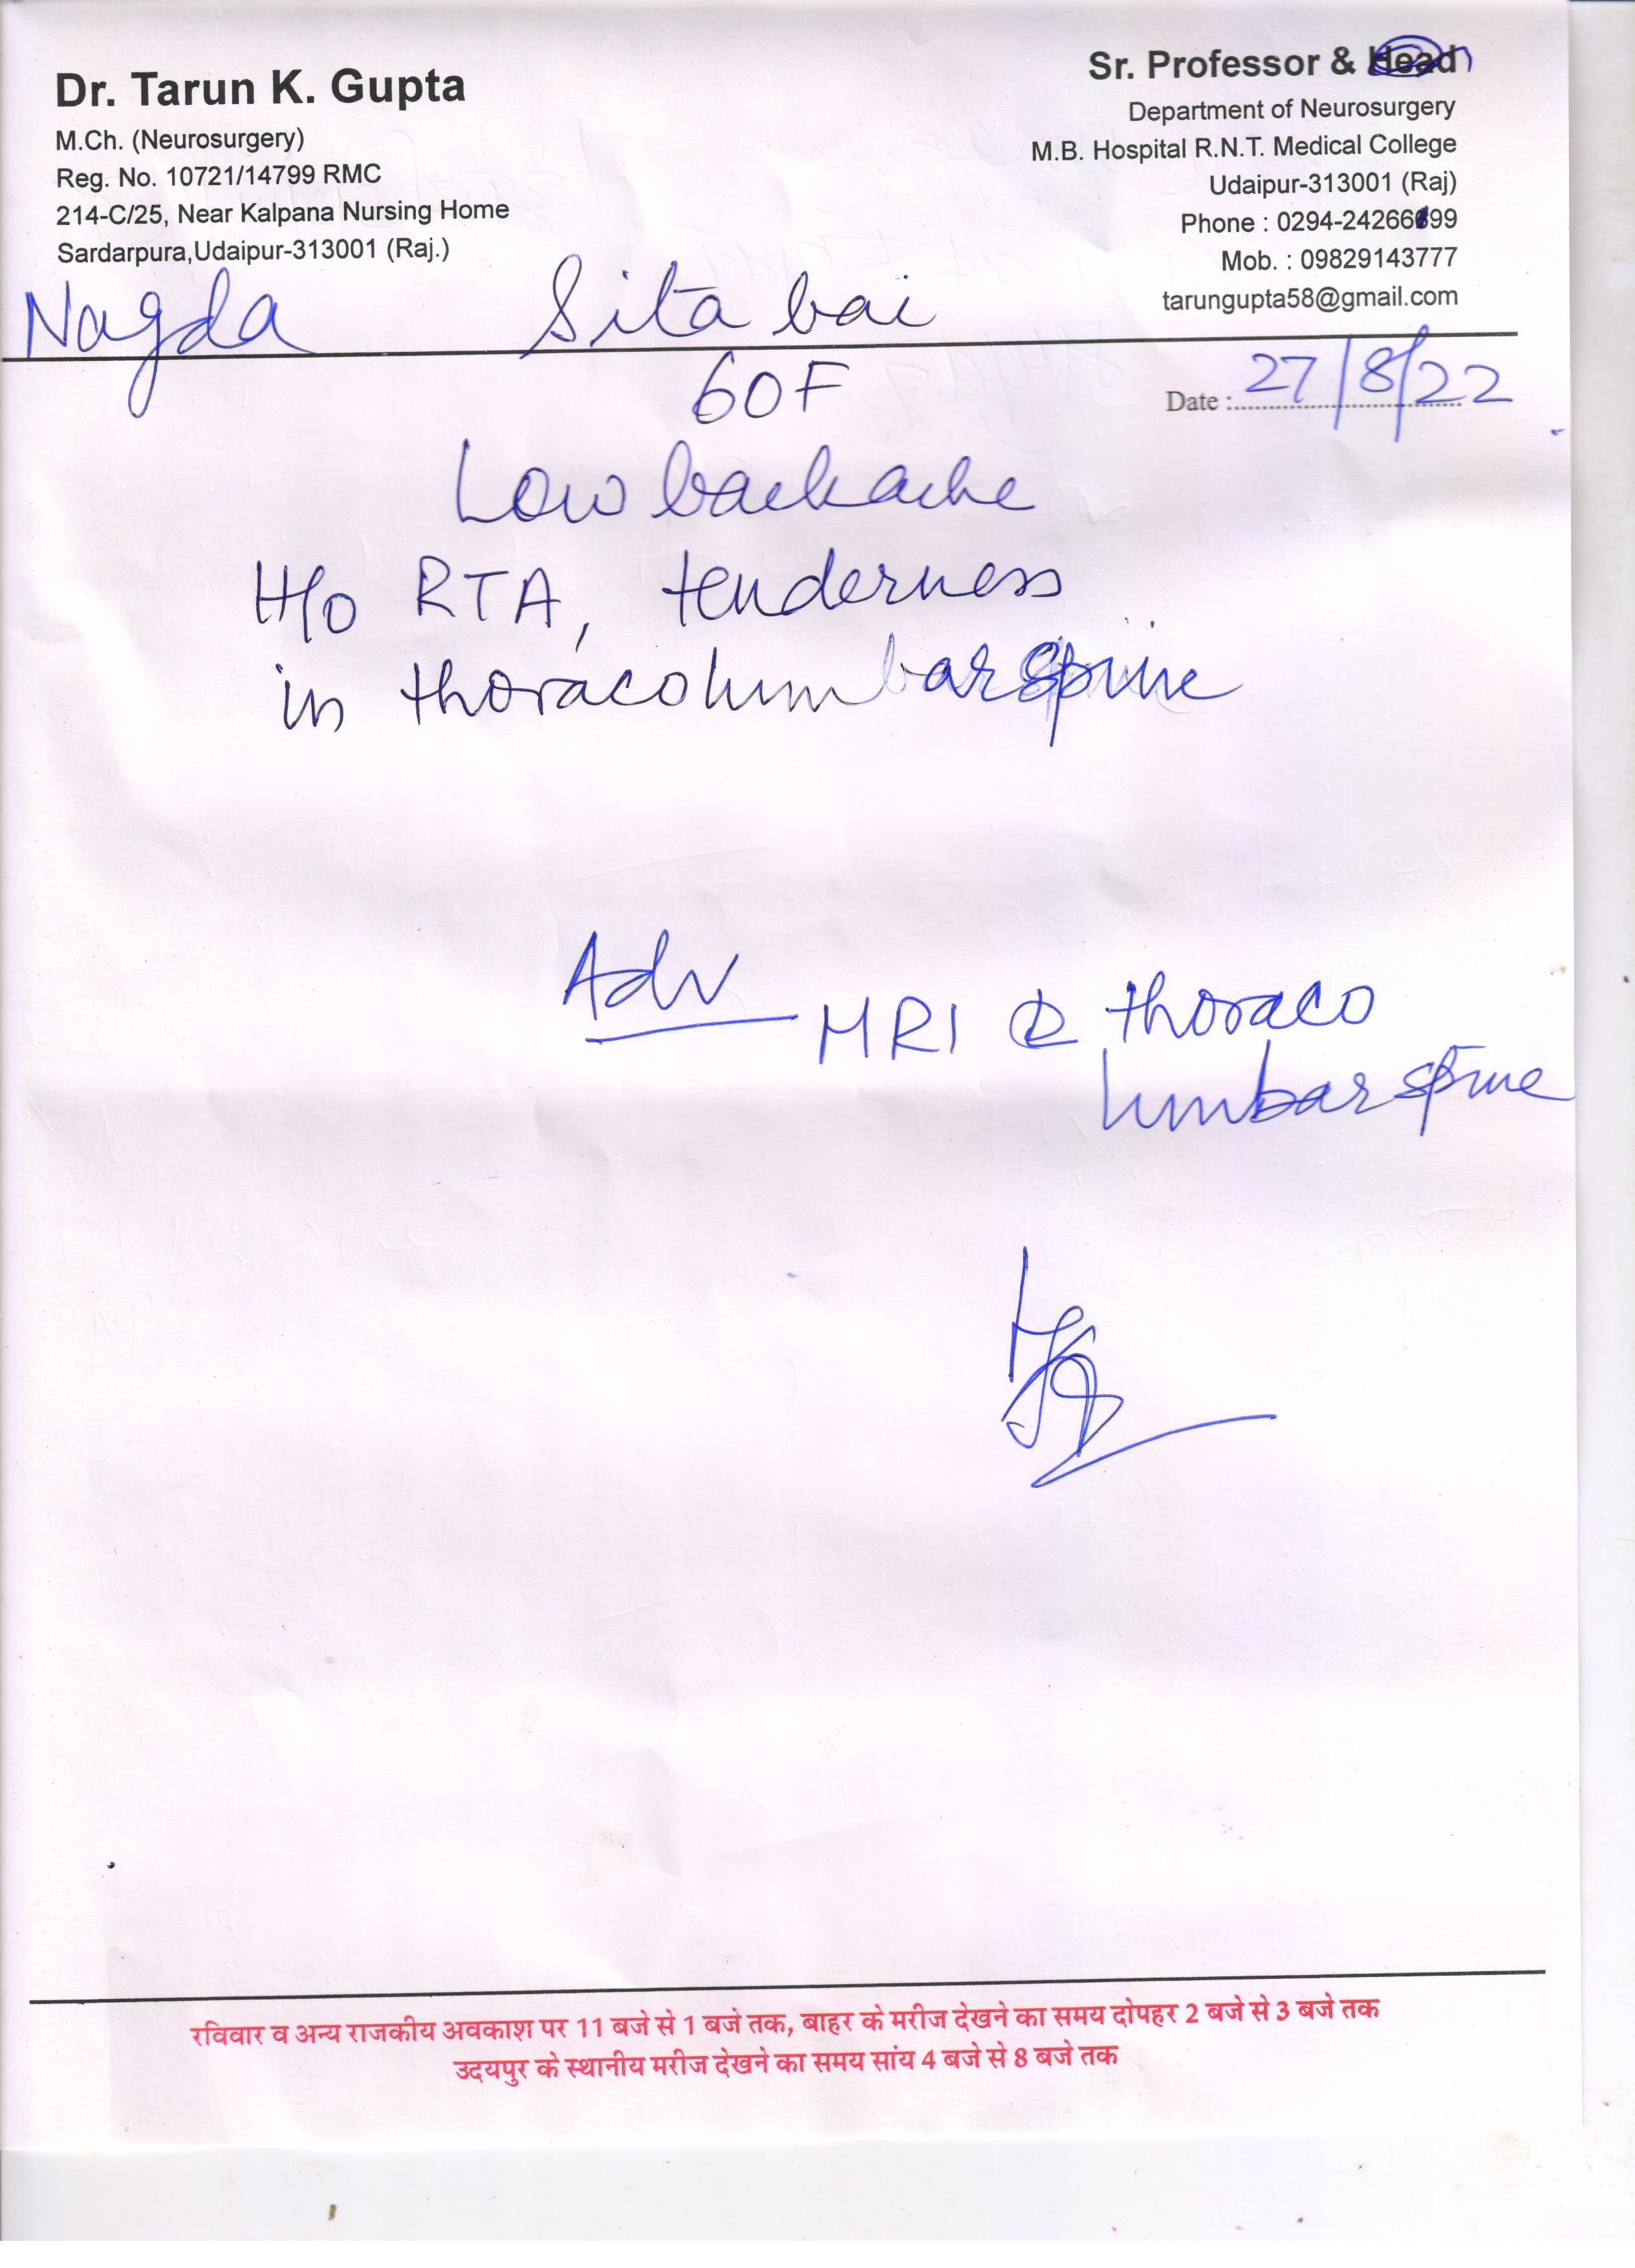 Dr. Tarun K. Gupta
M.Ch. (Neurosurgery)
Reg. No. 10721/14799 RMC
214-C/25, Near Kalpana Nursing Home
Sardarpura,Udaipur-313001 (Raj.)
Sr. Professor & Head
Department of Neurosurgery
M.B. Hospital R.N.T. Medical College
Udaipur-313001 (Raj)
Phone : 0294-2426699
Mob. : 09829143777
tarungupta58@gmail.com
Nagda Sita bai
60F
Date : 27/8/22
Low backache
H/o RTA, tenderness
in thoracolumbar spine
Adv
MRI thoraco
lumbar spine
रविवार व अन्य राजकीय अवकाश पर 11 बजे से 1 बजे तक, बाहर के मरीज देखने का समय दोपहर 2 बजे से 3 बजे तक
उदयपुर के स्थानीय मरीज देखने का समय सांय 4 बजे से 8 बजे तक